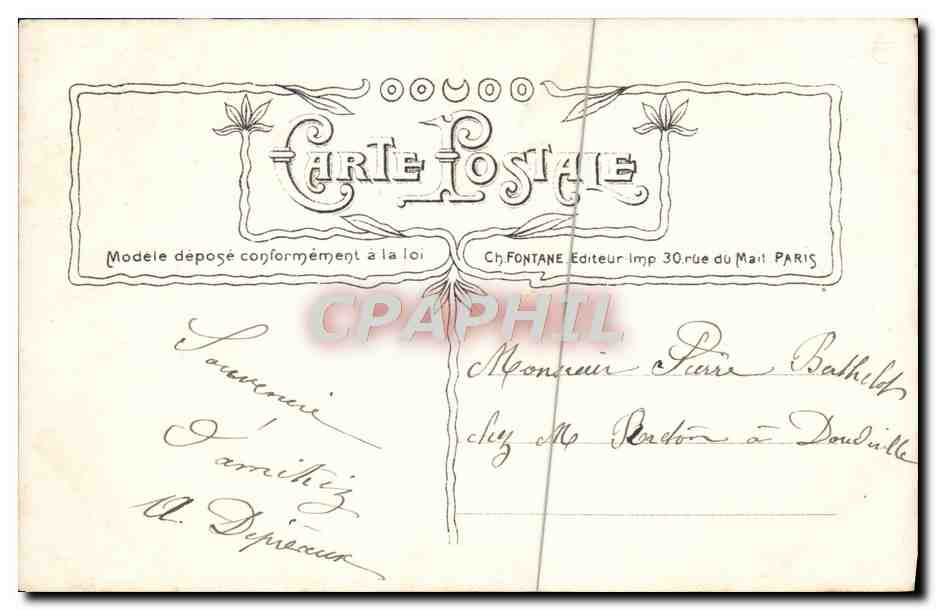 CARTE POSTALE
Modèle déposé conformément à la loi
Ch. FONTANE. Editeur-Imp 30. rue du Mail PARIS
CPAPHIL
Souvenir
D'amitiz
A. Dépréaux
Monsieur Pierre Berthelot
chez M à Doudeville